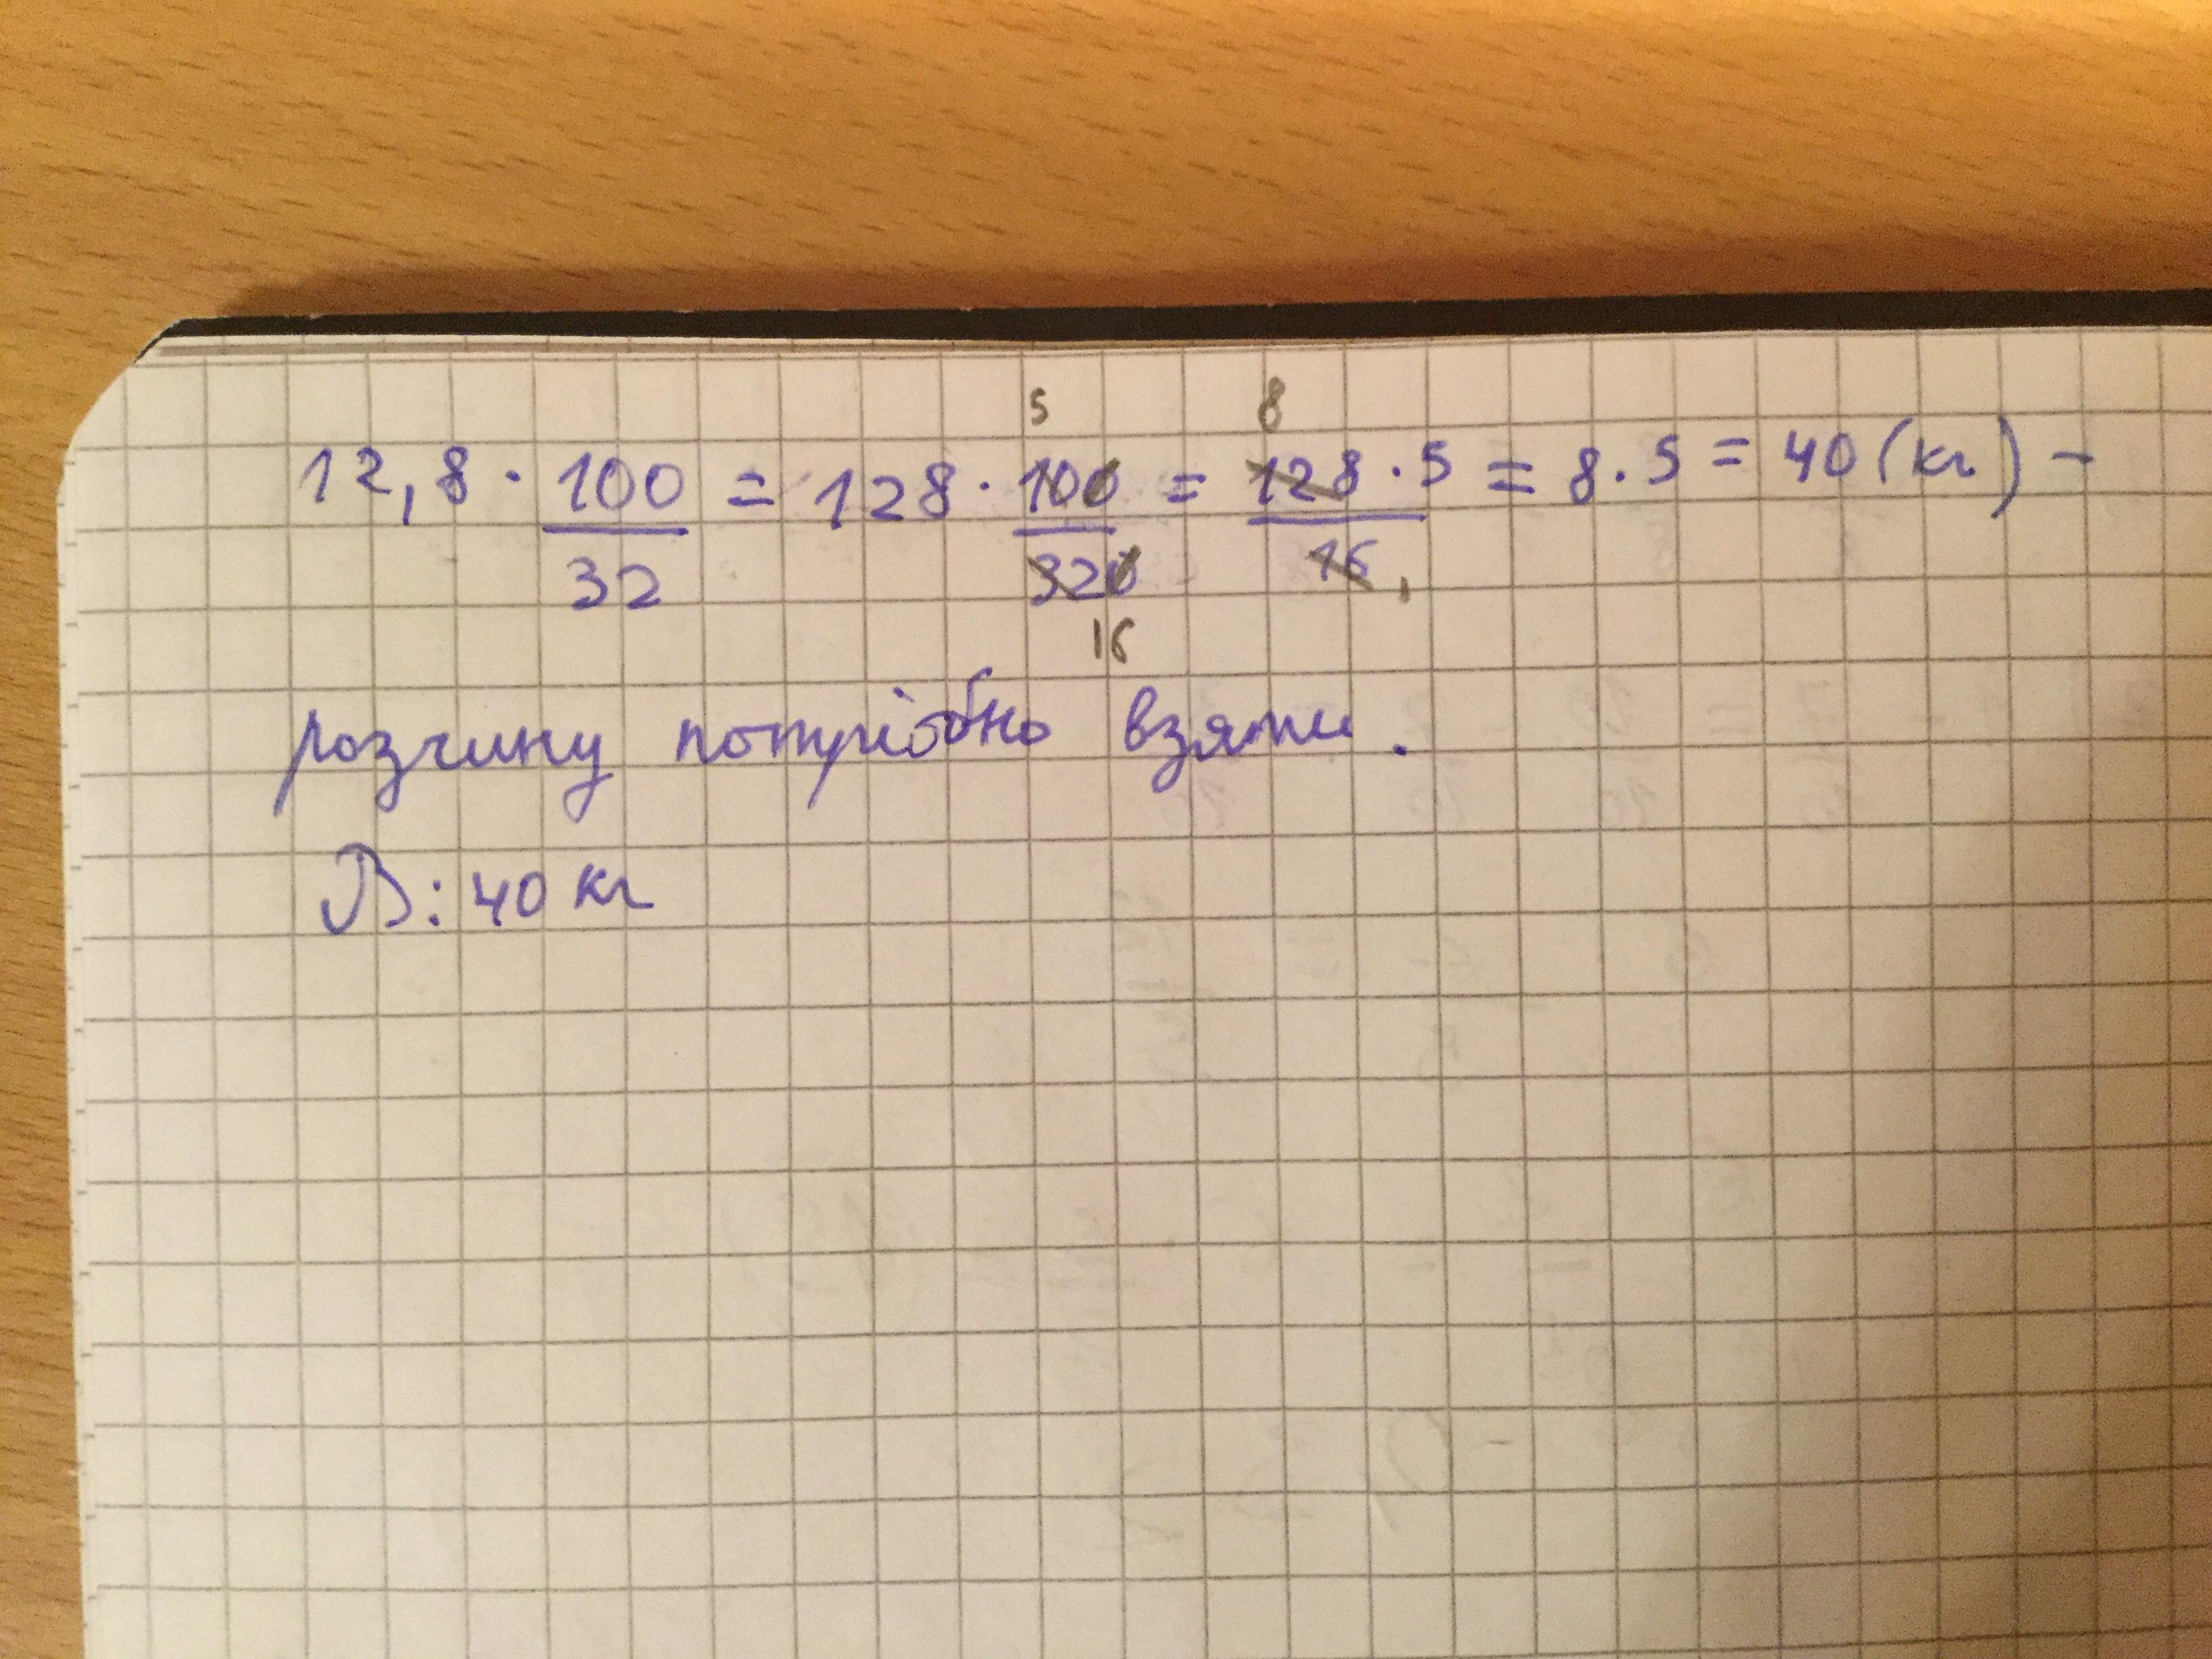 5 8
12,8 · 100/32 = 128 · 100/320 = 128 · 5/16 = 8 · 5 = 40 (кг) –
1
16
розчину потрібно взяти.
В: 40 кг